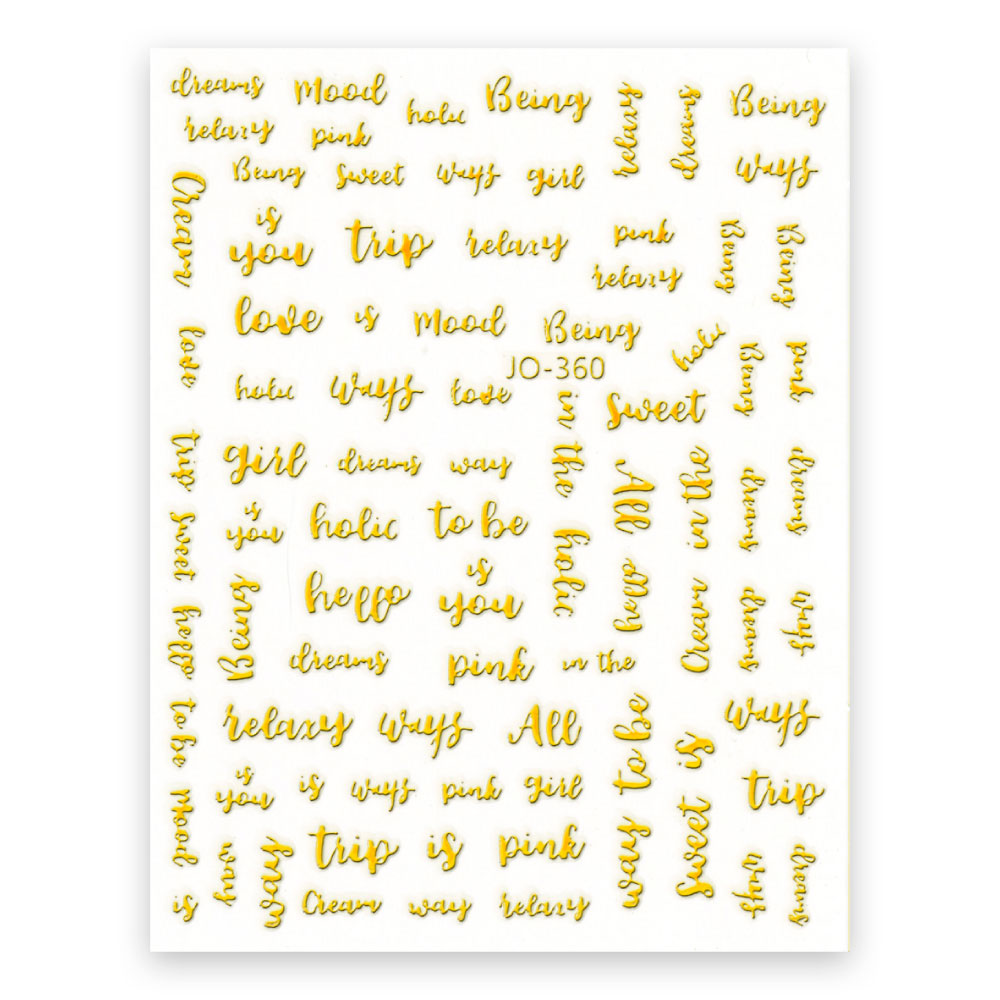 dreams Mood holic Being relaxy dreams Being
relaxy pink
Being Sweet ways girl ways
Cream
is
you trip relaxy pink Being Being
relaxy
love is Mood Being holic
love JO-360 Being pink
holic ways love in the Sweet
trip girl dreams way All in the dreams dreams
sweet is
you holic to be holic hello
hello Being hello is
you Cream dreams ways
dreams pink in the
to be relaxy ways All way to be sweet is ways
is
you is ways pink girl trip
Mood is way way trip is pink ways dreams
Cream way relaxy